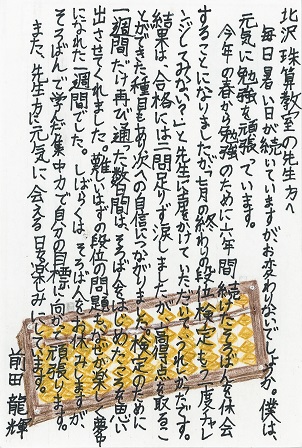 北沢珠算教室の先生方へ
毎日暑い日が続いていますがお変わりないでしょうか。僕は、
元気に勉強を頑張っています。
今年の春から勉強のために六年間続けたそろばんを休会
することになりましたが、七月の終わりの段位検定も「一度チャレ
ンジしてみない？」と先生に声をかけていただいてうれしかったです。
結果は、合格には一問足りず涙しましたが、高得点を取るこ
とができた種目もあり次への自信につながりました。検定のために
一週間だけ再び通った数日間は、そろばんをはじめたころを思い
出させてくれました。難しいはずの段位の問題もなぜか楽しく夢中
になれた一週間でした。しばらくは、そろばんをお休みしますが
そろばんで学んだ集中力で自分の目標に向かって頑張ります。
また、先生方に元気に会える日を楽しみにしています。
前田龍輝